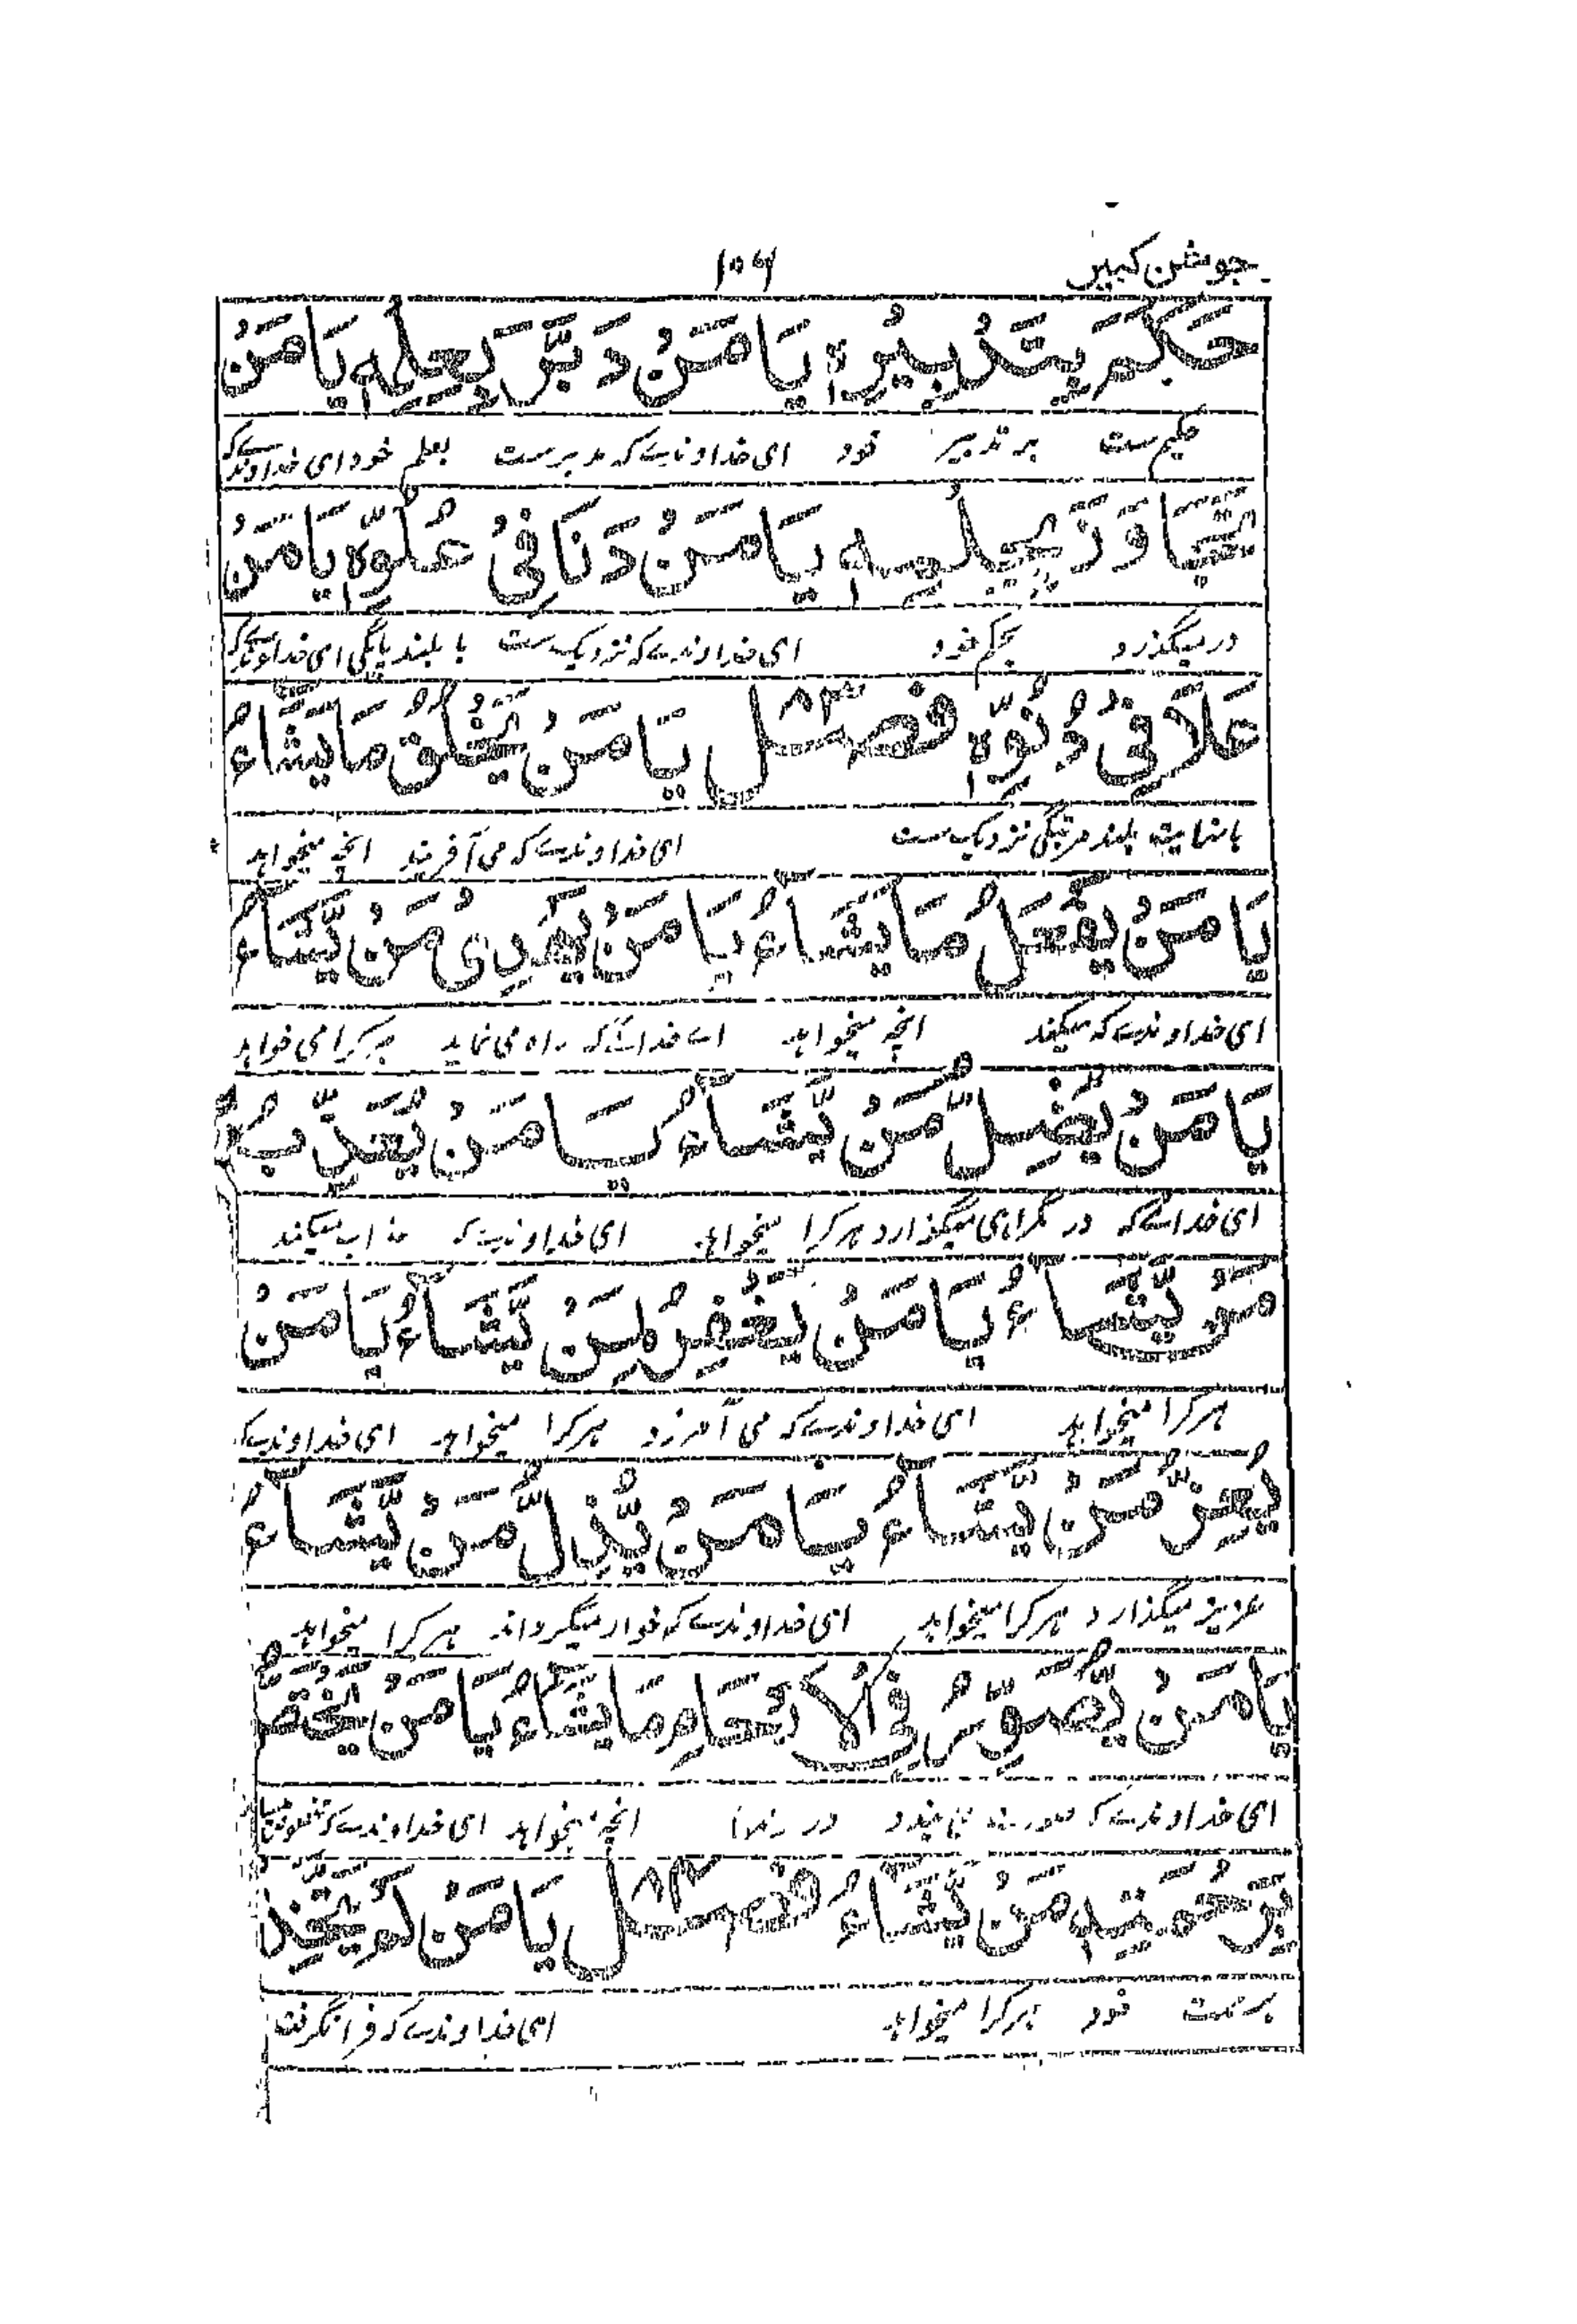 جوشن کبیر
۱۰۶
حَكَمَ بِتَدْبِيْرِهٖ يَا مَنْ دَبَّرَ بِعِلْمِهٖ يَا مَنْ
حکیم ست بہ تدبیر خود ای خداوندے کہ مدبرست بعلم خود ای خداوندے کہ
تَجَاوَزَ بِحِلْمِهٖ يَا مَنْ دَنَا فِيْ عُلُوِّهٖ يَا مَنْ
درمیگذرد بحکم خود ای خداوندے کہ نزدیک ست با بلند پایگی ای خداوندے کہ
عَلَا فِيْ دُنُوِّهٖ فصل ۸۳ يَا مَنْ يَّخْلُقُ مَا يَشَاءُ
بلند مرتبگی نزدیک ست ای خداوندے کہ می آفریند انچہ میخواہد
يَا مَنْ يَفْعَلُ مَا يَشَاءُ يَا مَنْ يَّهْدِيْ مَنْ يَّشَاءُ
ای خداوندے کہ میکند انچہ میخواہد اے خدائیکہ راہ می نماید ہر کرا می خواہد
يَا مَنْ يُضِلُّ مَنْ يَّشَاءُ يَا مَنْ يُعَذِّبُ
ای خدائیکہ در گمراہی میگذارد ہر کرا میخواہد ای خداوندیکہ عذاب میکند
مَنْ يَّشَاءُ يَا مَنْ يَغْفِرُ لِمَنْ يَّشَاءُ يَا مَنْ
ہر کرا میخواہد ای خداوندے کہ می آمرزد ہر کرا میخواہد ای خداوندیکہ
يُعِزُّ مَنْ يَّشَاءُ يَا مَنْ يُّذِلُّ مَنْ يَّشَاءُ
عزیز میگذارد ہر کرا میخواہد ای خداوندے کہ خوار میگرداند ہر کرا میخواہد
يَا مَنْ يُّصَوِّرُ فِي الْاَرْحَامِ مَا يَشَاءُ يَا مَنْ يَّخْتَصُّ
ای خداوندے کہ صورت می بندد در انچہ میخواہد ای خداوندے کہ
بِرَحْمَتِهٖ مَنْ يَّشَاءُ فصل ۸۴ يَا مَنْ لَمْ يَتَّخِذْ
خود ہر کرا میخواہد ای خداوندے کہ فرا نگرفت